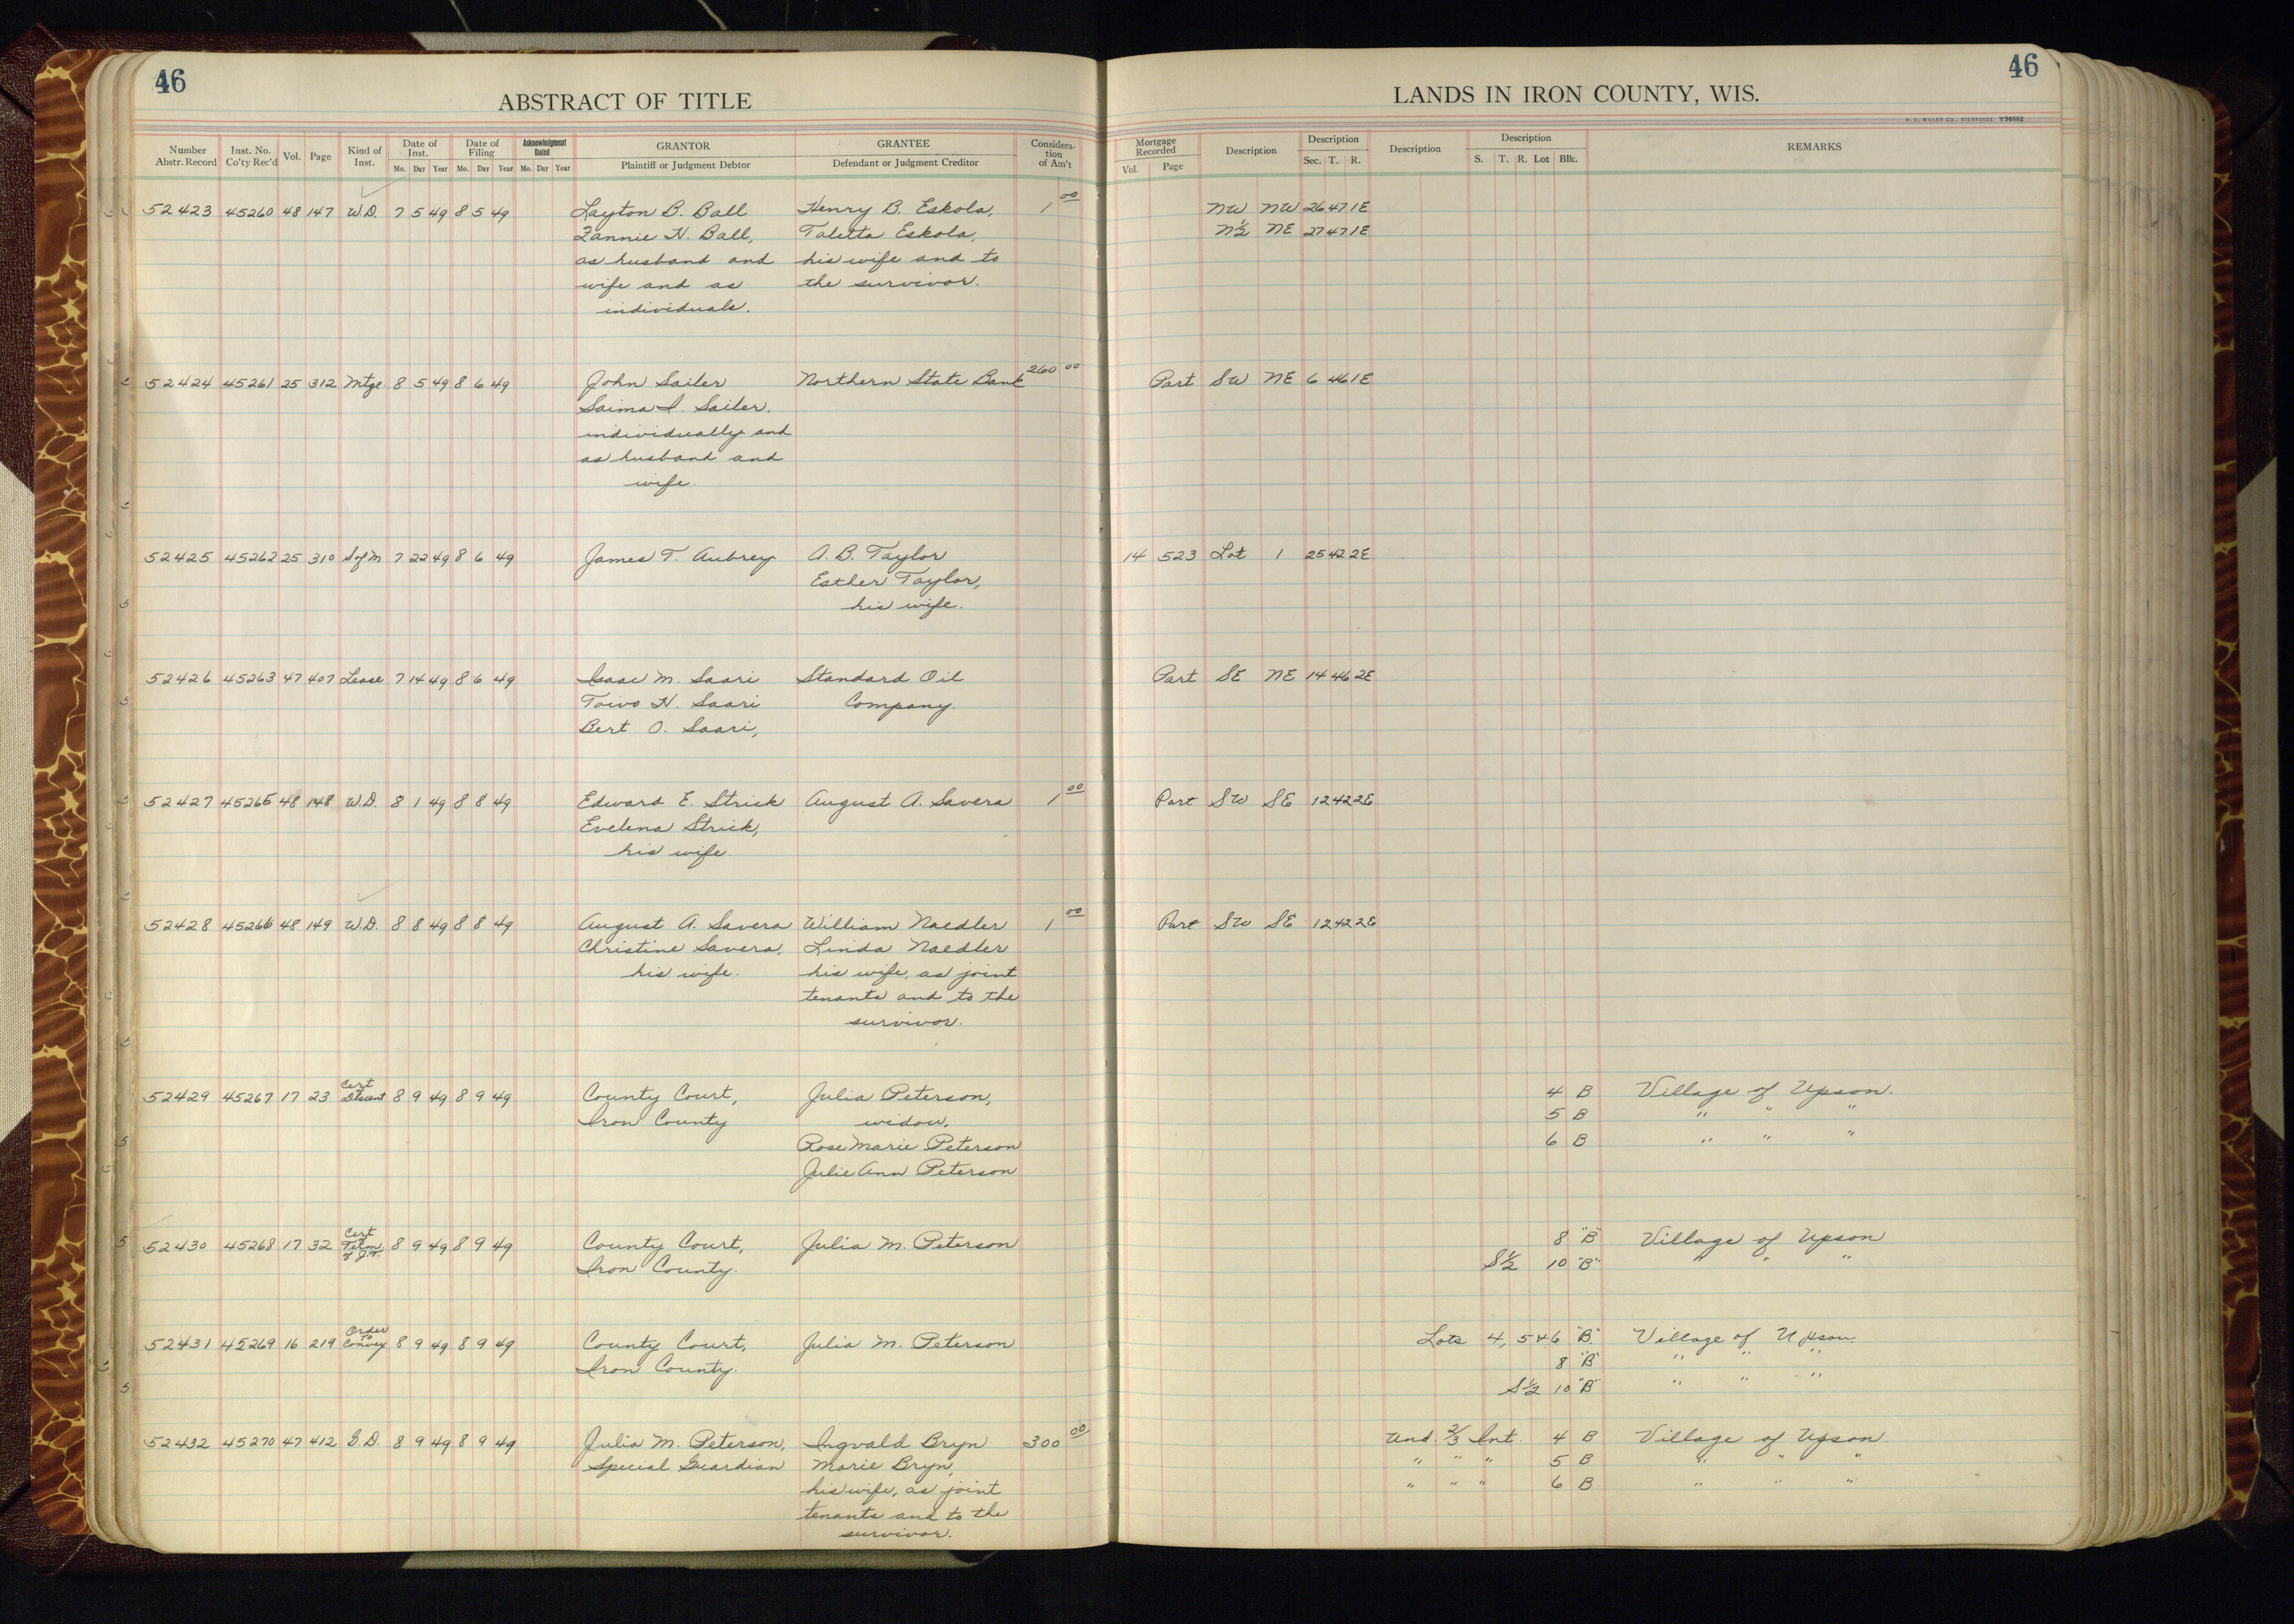 46
46
ABSTRACT OF TITLE
LANDS IN IRON COUNTY, WIS.
H. C. MILLER CO., MILWAUKEE Y56662
Number Abstr. Record Inst. No. Co'ty Rec'd Vol. Page Kind of Inst. Date of Inst. Mo. Day Year Date of Filing Mo. Day Year Acknowledgment Dated Mo. Day Year GRANTOR Plaintiff or Judgment Debtor GRANTEE Defendant or Judgment Creditor Considera-tion of Am't Mortgage Recorded Vol. Page Description Description Sec. T. R. Description Description S. T. R. Lot Blk. REMARKS
52423 45260 48 147 W.D. 7 5 49 8 5 49 Layton B. Ball Henry B. Eskola, 1 00 NW NW 26 47 1E
Fannie H. Ball, Taletta Eskola, N½ NE 27 47 1E
as husband and his wife and to
wife and as the survivor.
individuals.
52424 45261 25 312 Mtge 8 5 49 8 6 49 John Sailer Northern State Bank 260 00 Part SW NE 6 46 1E
Saima I. Sailer.
individually and
as husband and
wife.
52425 45262 25 310 S of M 7 22 49 8 6 49 James T. Aubrey A. B. Taylor 14 523 Lot 1 25 42 2E
Esther Taylor,
his wife.
52426 45263 47 407 Lease 7 14 49 8 6 49 Isaac M. Saari Standard Oil Part SE NE 14 46 2E
Toivo H. Saari Company.
Bert O. Saari,
52427 45265 48 148 W.D. 8 1 49 8 8 49 Edward E. Strick August A. Savera 1 00 Part SW SE 12 42 2E
Evelena Strick,
his wife.
52428 45266 48 149 W.D. 8 8 49 8 8 49 August A. Savera William Naedler 1 00 Part SW SE 12 42 2E
Christine Savera, Linda Naedler
his wife. his wife, as joint
tenants and to the
survivor.
52429 45267 17 23 Cert Descent 8 9 49 8 9 49 County Court, Julia Peterson, 4 B Village of Upson.
Iron County widow, 5 B " " "
Rose Marie Peterson 6 B " " "
Julie Ann Peterson
52430 45268 17 32 Cert Term of J.T. 8 9 49 8 9 49 County Court, Julia M. Peterson 8 "B" Village of Upson
Iron County. S½ 10 "B" " " "
52431 45269 16 219 Order to Convey 8 9 49 8 9 49 County Court, Julia M. Peterson Lots 4, 5 & 6 "B" Village of Upson.
Iron County. 8 "B" " " "
S½ 10 "B" " " "
52432 45270 47 412 G.D. 8 9 49 8 9 49 Julia M. Peterson, Ingvald Bryn 300 00 Und. 2/3 Int. 4 B Village of Upson.
Special Guardian Marie Bryn, " " " 5 B " " "
his wife, as joint " " " 6 B " " "
tenants and to the
survivor.